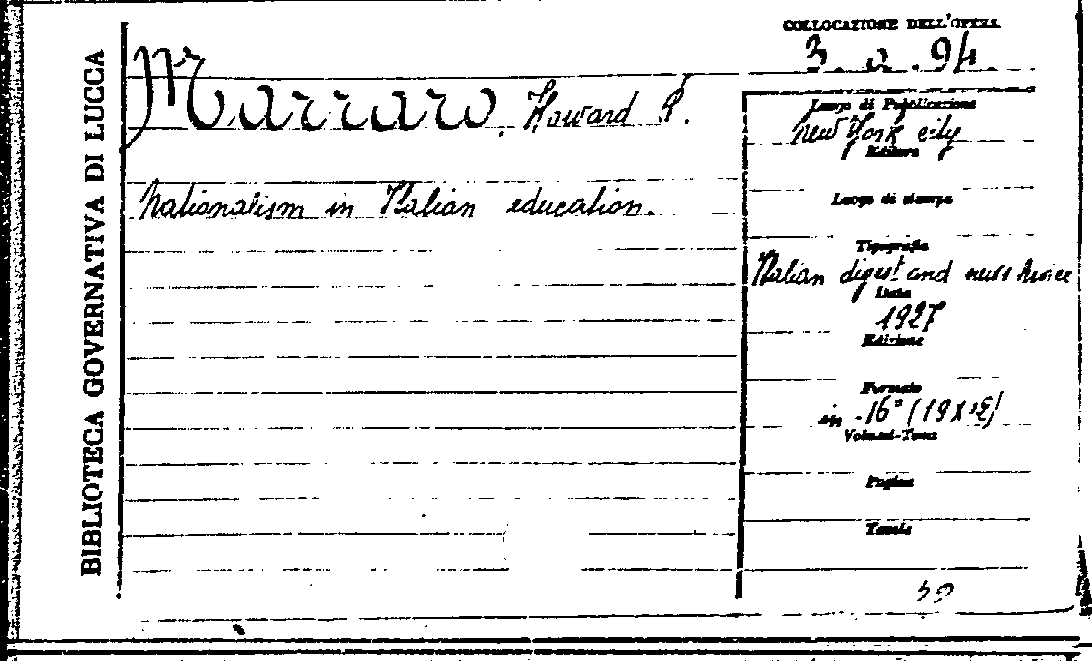 BIBLIOTECA GOVERNATIVA DI LUCCA
COLLOCAZIONE DELL'OPERA
3. a. 94.
Marraro, Howard
Nationalism in Italian education.
Luogo di Pubblicazione
New York city
Editore
Luogo di stampa
Tipografia
Italian digest and news
Data
1927
Edizione
Formato
in -16° (19 X
Volumi-Tomi
Pagine
Tavole